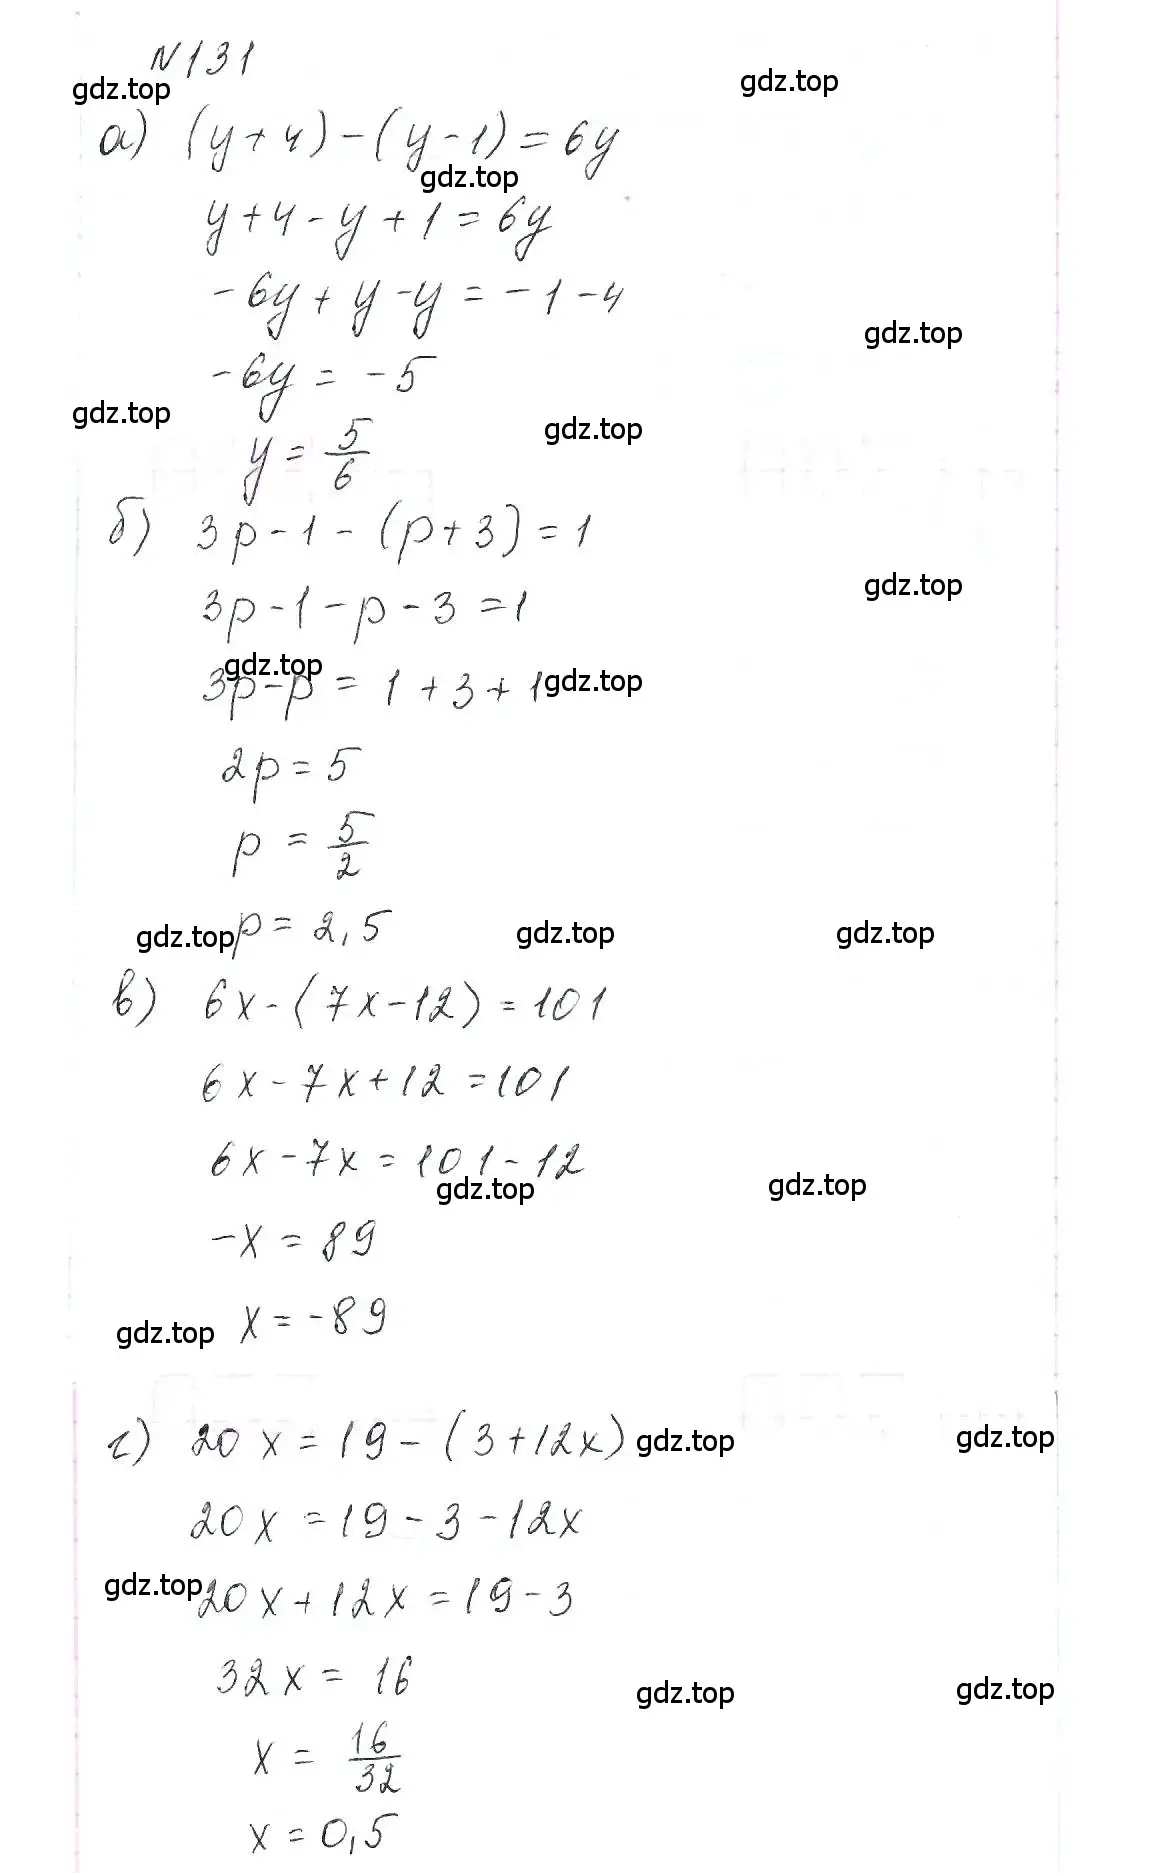 N131
gdz.top
gdz.top
а) (y+4)-(y-1)=6y
gdz.top
y+4-y+1=6y
-6y+y-y=-1-4
gdz.top
-6y=-5
gdz.top
gdz.top
y=5/6
б) 3p-1-(p+3)=1
gdz.top
3p-1-p-3=1
gdz.top
3p-p=1+3+1
gdz.top
2p=5
p=5/2
gdz.top
p=2,5
gdz.top
gdz.top
в) 6x-(7x-12)=101
6x-7x+12=101
6x-7x=101-12
gdz.top
gdz.top
-x=89
gdz.top
x=-89
г) 20x=19-(3+12x)
gdz.top
gdz.top
20x=19-3-12x
gdz.top
20x+12x=19-3
32x=16
gdz.top
gdz.top
x=16/32
x=0,5